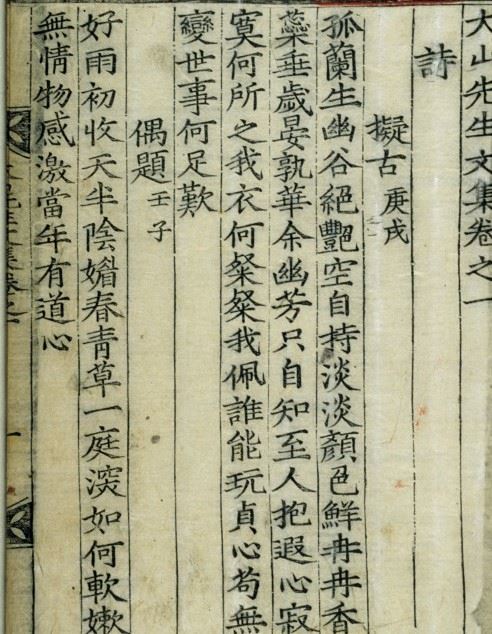 大山先生文集卷之一
詩
擬古 庚戌
孤蘭生幽谷絕豔空自持淡淡顏色鮮冉冉香
蘂垂歲晏孰華余幽芳只自知至人抱遐心寂
寞何所之我衣何粲粲我佩誰能玩貞心苟無
變世事何足歎
偶題 壬子
好雨初收天半陰媚春靑草一庭深如何軟嫰
無情物感激當年有道心